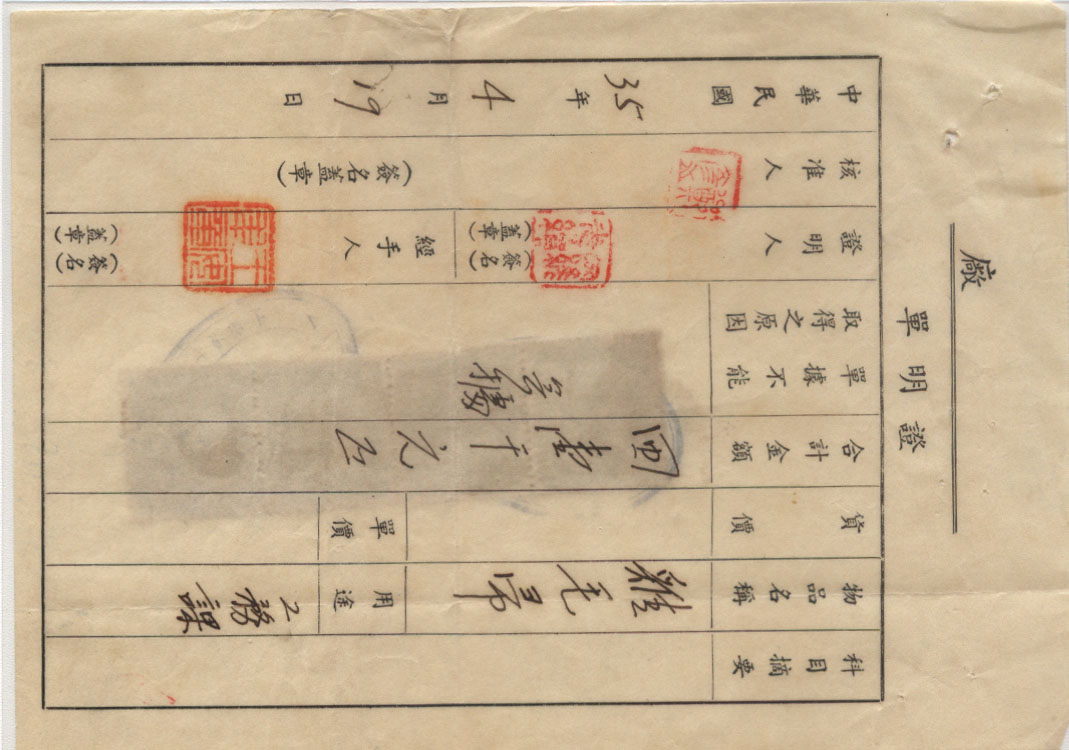 廠
證明單
科目摘要
物品名稱
雞毛帚
用途
工務課
貨價
單價
合計金額
千元正
單據不能
取得之原因
據
證明人
(簽名)
(蓋章)
經手人
(簽名)
(蓋章)
核准人
(簽名蓋章)
中華民國35年4月19日